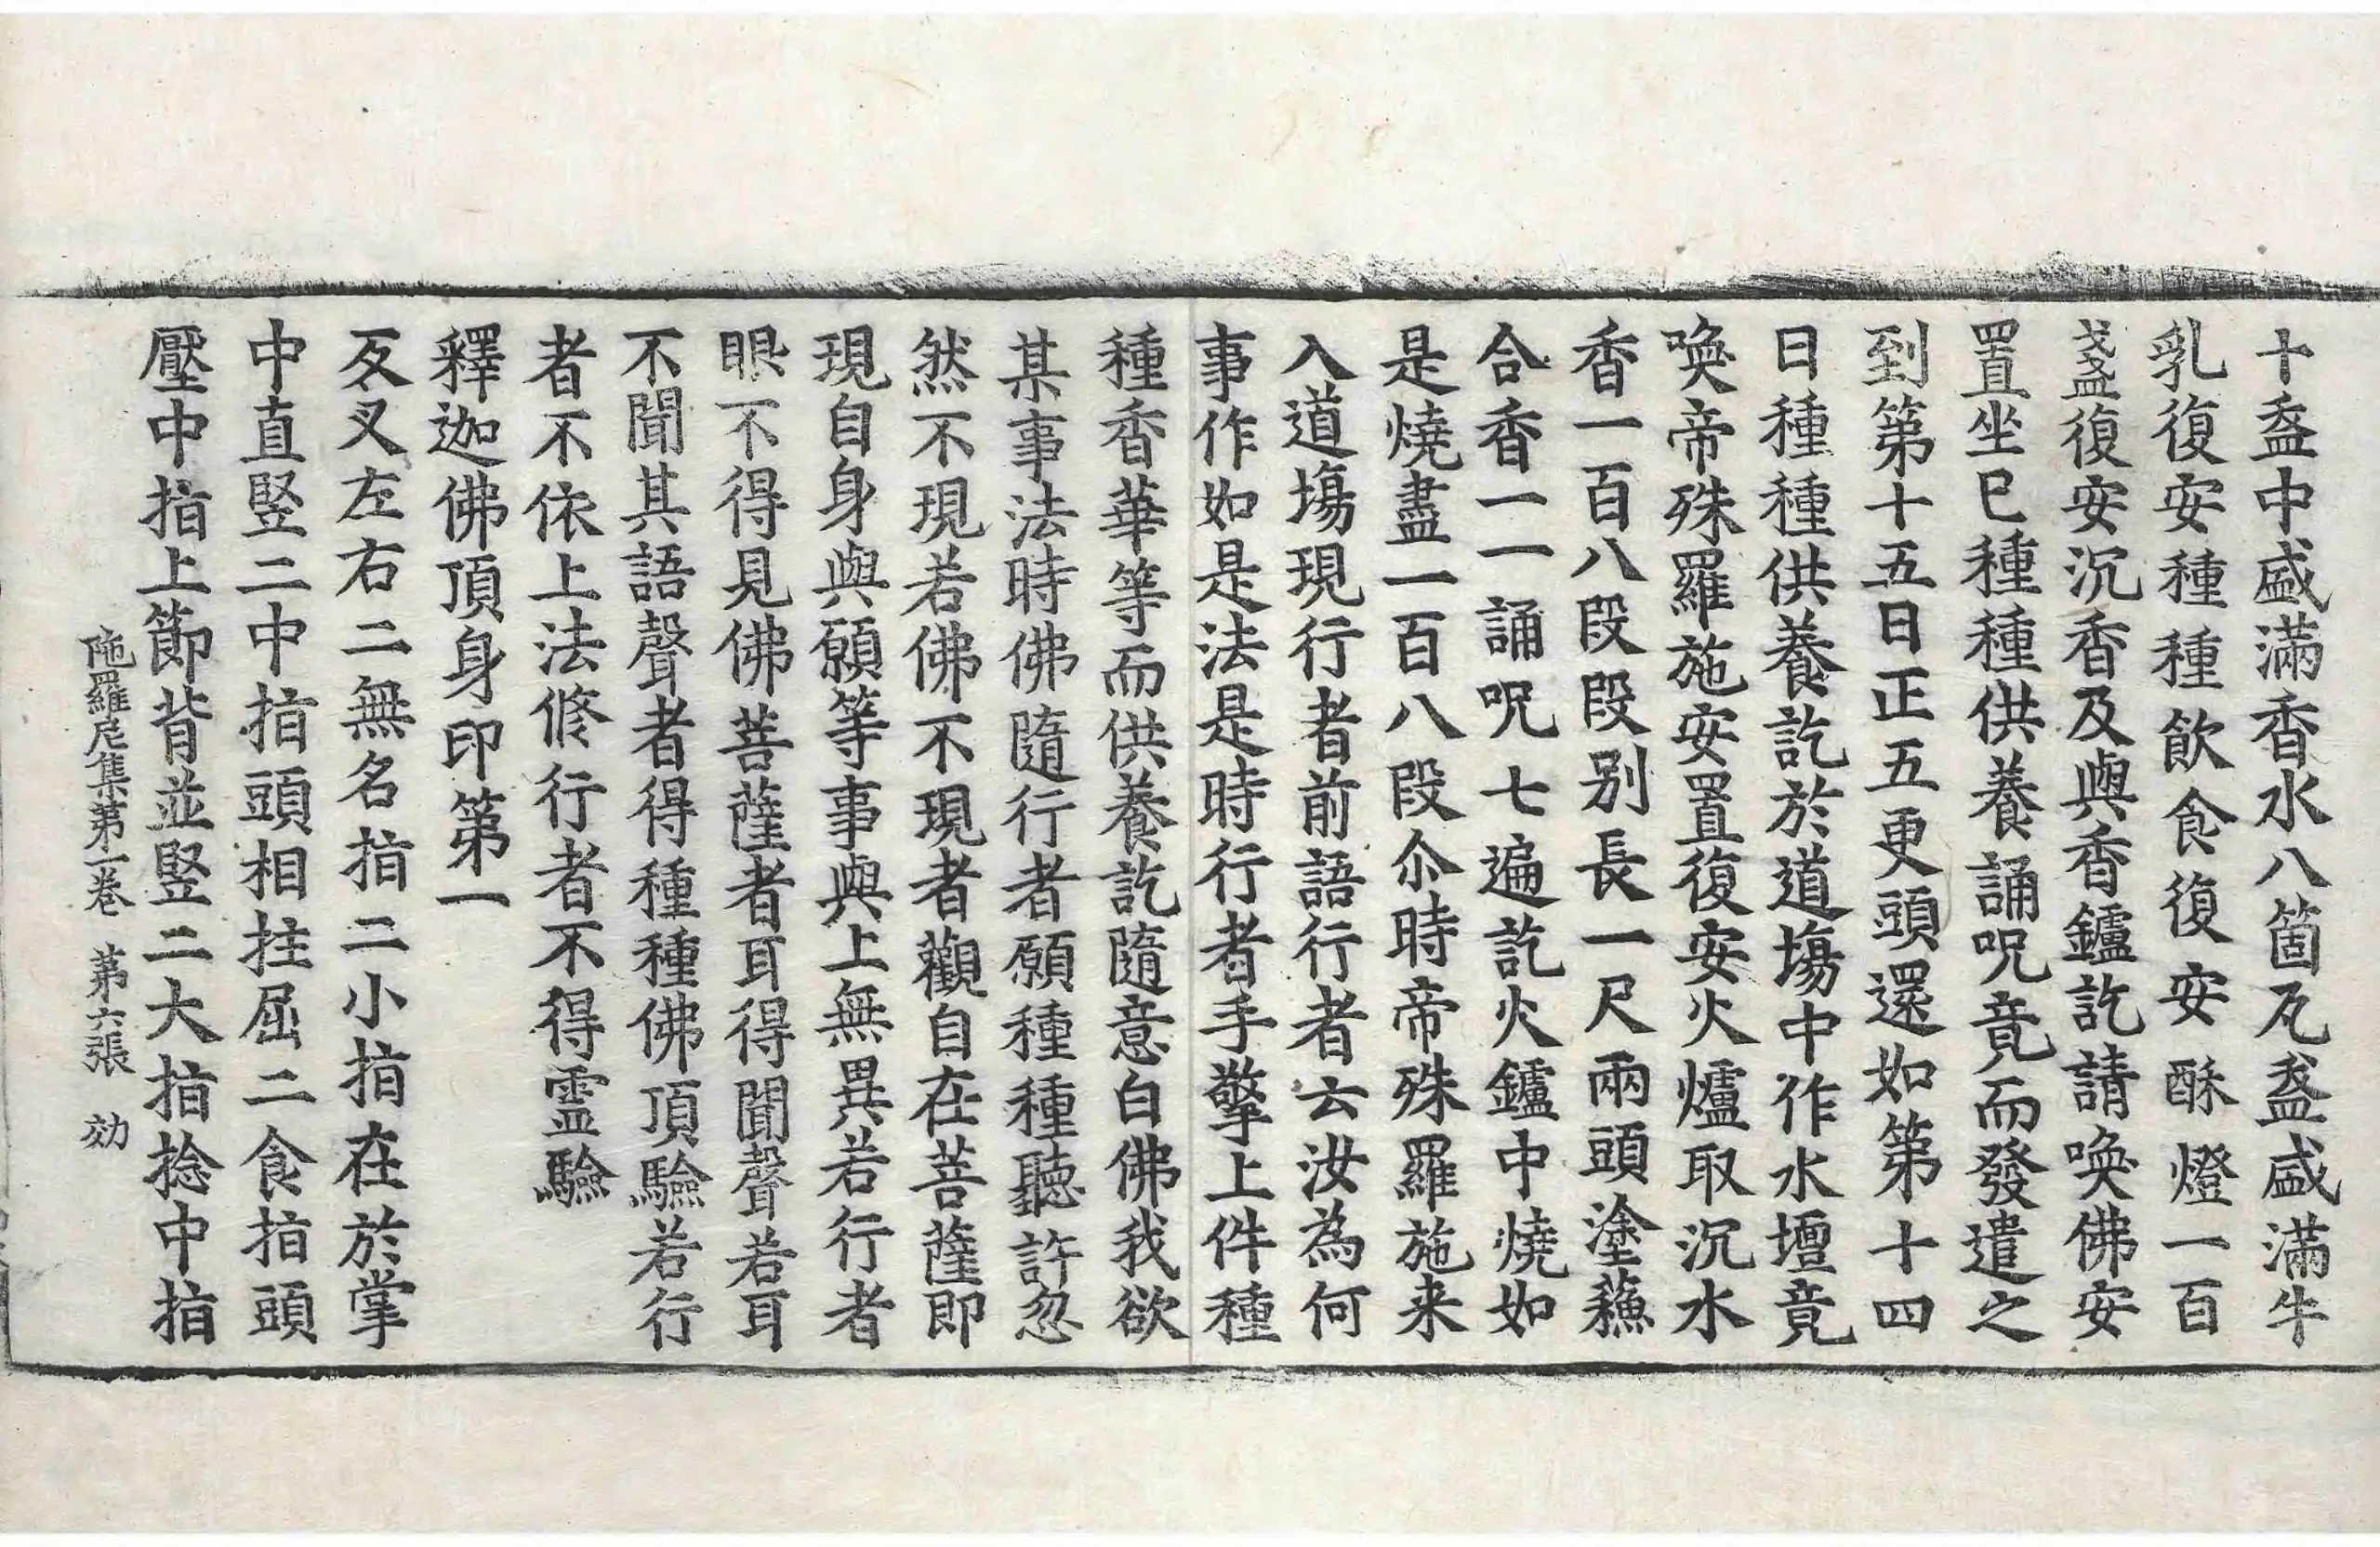 十盌中盛滿香水八箇瓦盌盛滿牛
乳復安種種飲食復安酥燈一百
盞復安沉香及與香鑪訖請喚佛安
置坐已種種供養誦呪竟而發遣之
到第十五日正五更頭還如第十四
日種種供養訖於道塲中作水壇竟
喚帝殊羅施安置復安火爐取沉水
香一百八段段別長一尺兩頭塗蘓
合香一一誦呪七遍訖火鑪中燒如
是燒盡一百八段尒時帝殊羅施来
入道塲現行者前語行者云汝為何
事作如是法是時行者手擎上件種
種香華等而供養訖隨意白佛我欲
某事法時佛隨行者願種種聽許忽
然不現若佛不現者觀自在菩薩即
現自身與願等事與上無異若行者
眼不得見佛菩薩者耳得聞聲若耳
不聞其語聲者得種種佛頂驗若行
者不依上法修行者不得靈驗
釋迦佛頂身印第一
反叉左右二無名指二小指在於掌
中直竪二中指頭相拄屈二食指頭
壓中指上節背並竪二大指捻中指
陁羅尼集第一卷 第六張 効